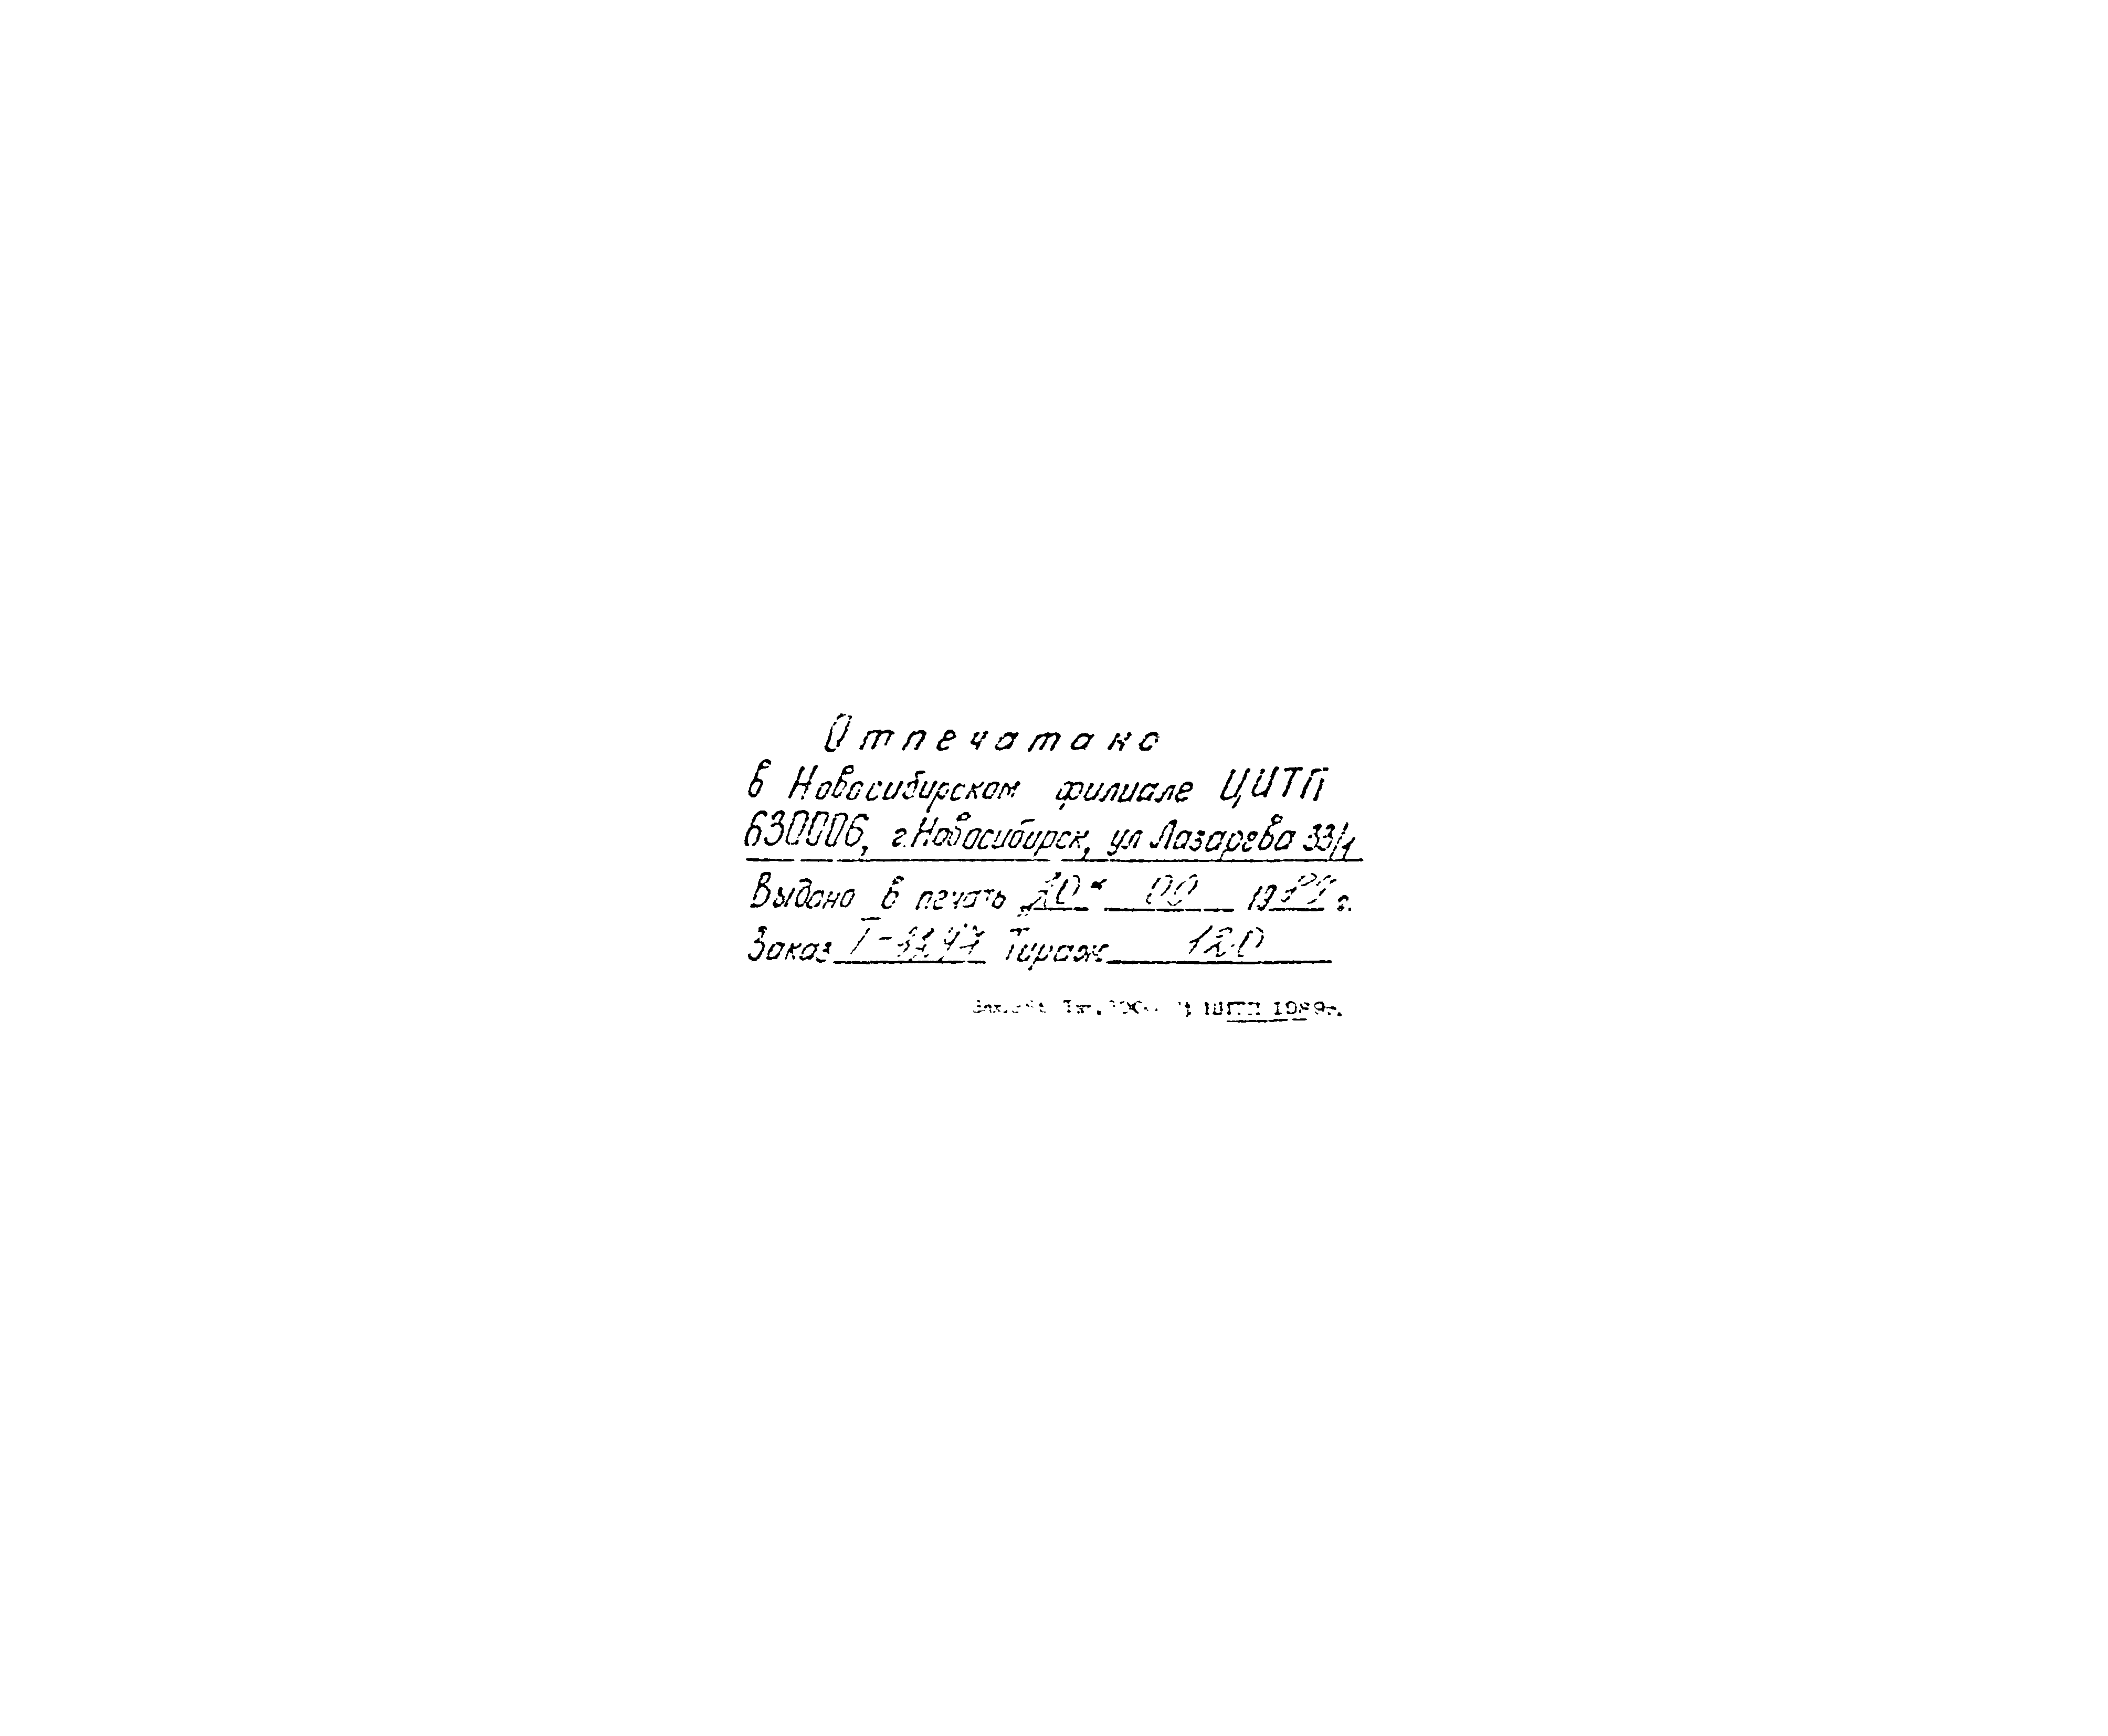 Отпечатано
в Новосибирском филиале ЦИТП
630006, г.Новосибирск, ул Лазарева 33/1
Выдано в печать 19 г.
Заказ Тираж 120
ЦИТП 1989г.